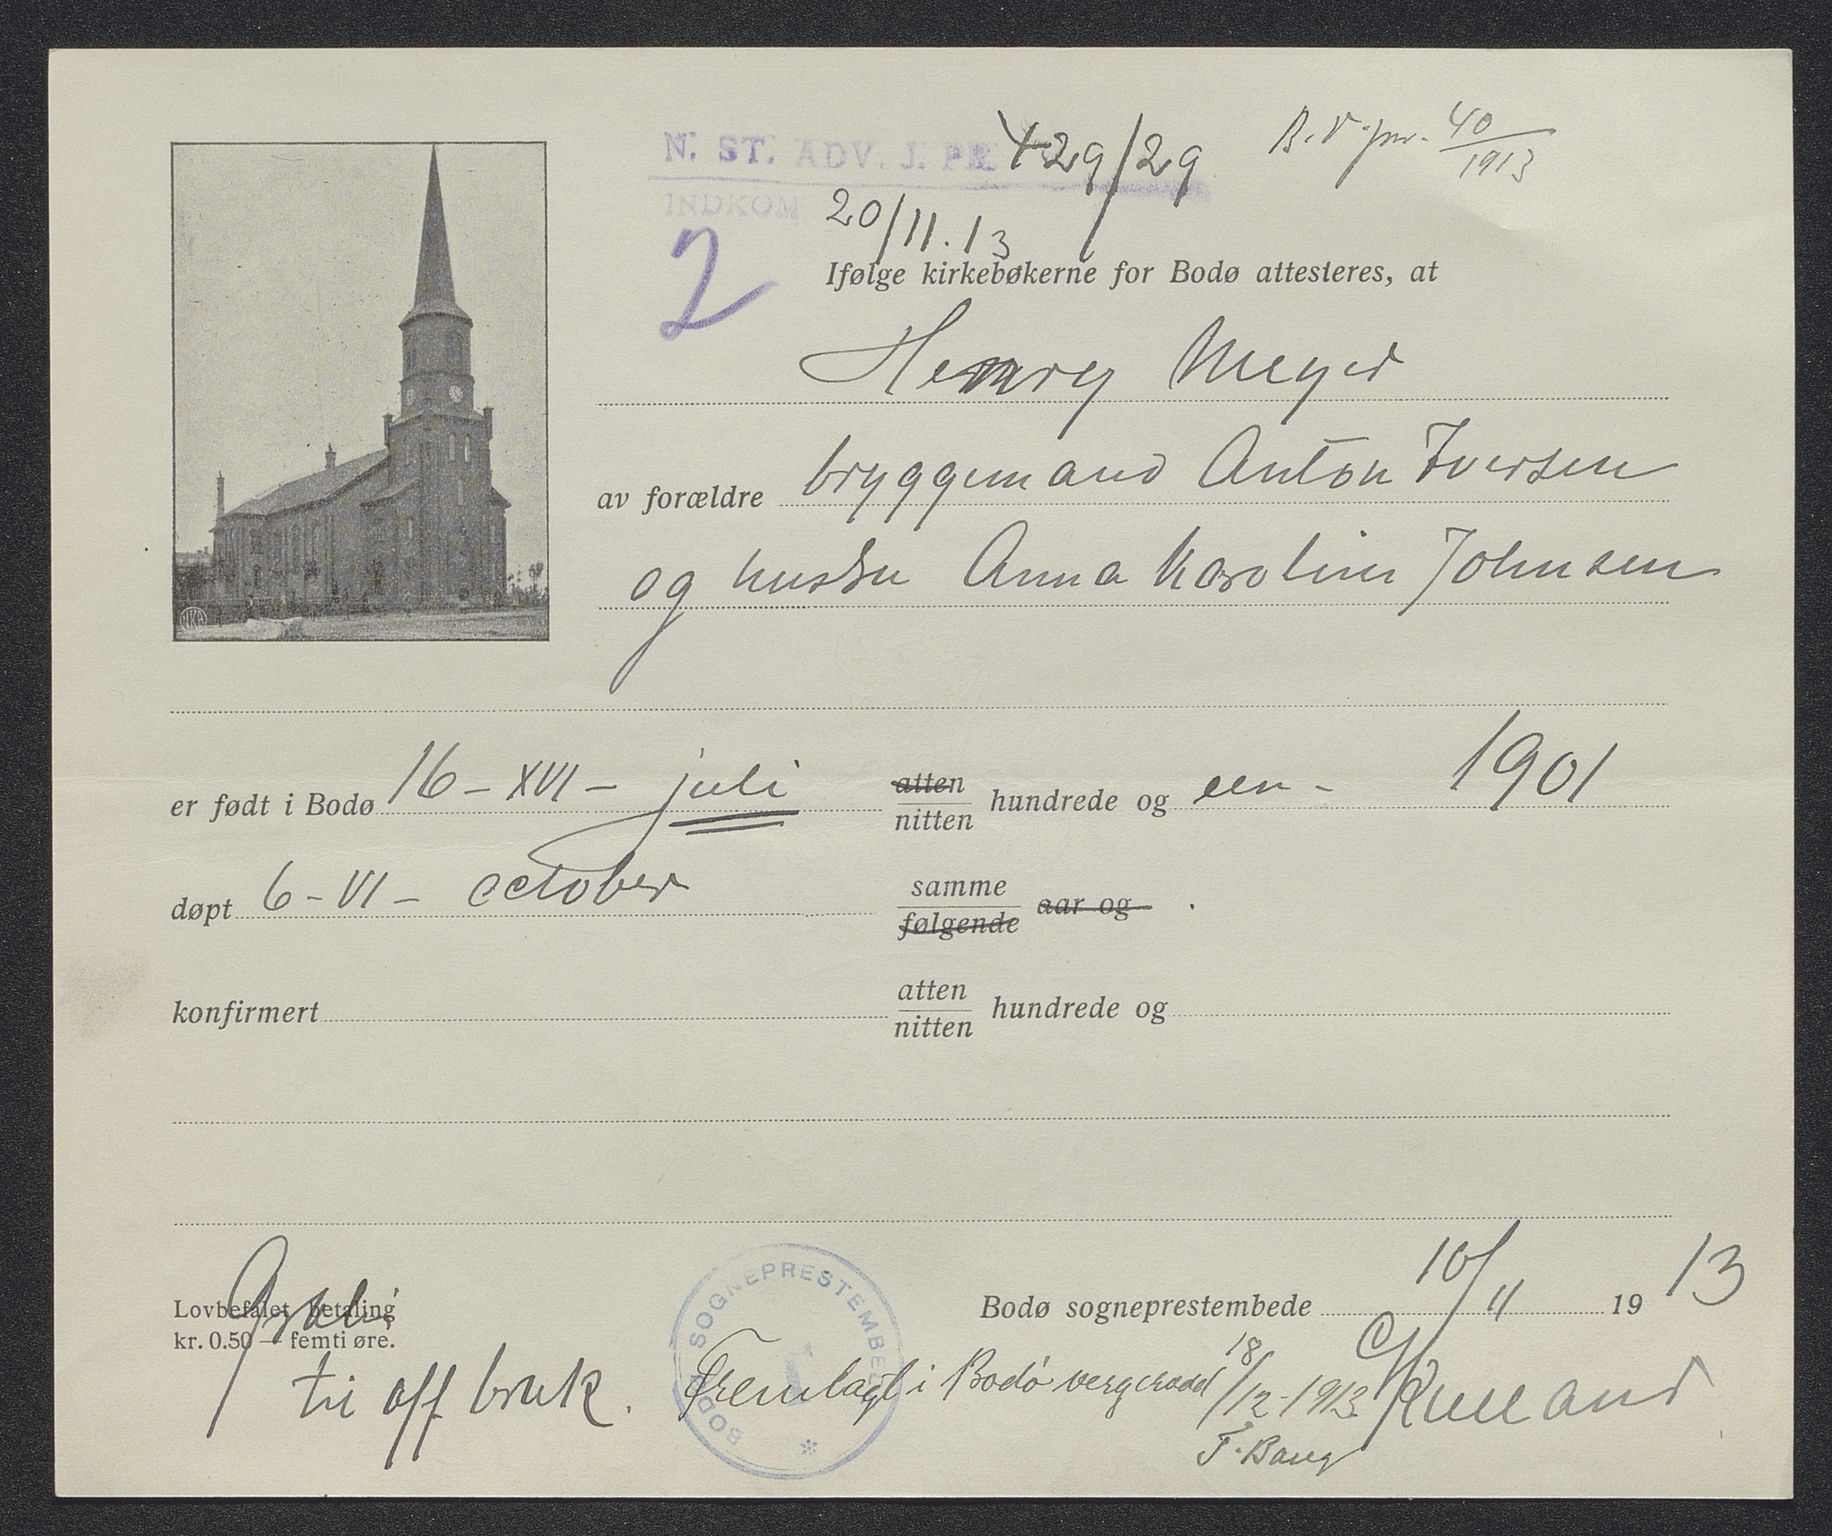 N. ST. ADV. J.
429/29
B.V. jnr. 40/1913
INDKOM
20/11.13
2
Ifølge kirkebøkerne for Bodø attesteres, at
Henry Meyer
av forældre bryggemand Anton Iversen
og hustru Anna Karoline Johnsen
er født i Bodø 16 – XVI – juli atten nitten hundrede og een – 1901
døpt 6 – VI – october samme følgende aar og .
konfirmert atten nitten hundrede og
Lovbefalet betaling
kr. 0.50 — femti øre.
Gratis
til off bruk.
BODØ SOGNEPRESTEMBEDE
Bodø sogneprestembede 10/11 1913
Fremlagt i Bodø vergeraad 18/12-1913
F. Bang